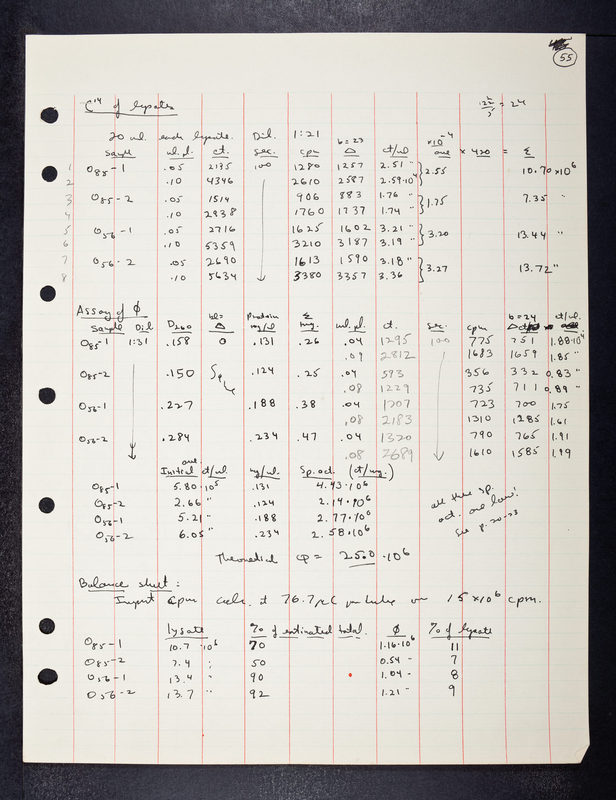 55
C14 of lysates
122/5 = 24
20 ul. each lysate. Dil. 1:21
b = 23 x10-4
Sample ul. pl. ct. sec. cpm Δ ct/ul ave x 420 = Σ
1 O85-1 .05 2135 100 1280 1257 2.51 " } 2.55 10.70 x 10^6
2 .10 4346 2610 2587 2.59·10^4
3 O85-2 .05 1514 906 883 1.76 " } 1.75 7.35 "
4 .10 2938 1760 1737 1.74 "
5 O56-1 .05 2716 1625 1602 3.21 " } 3.20 13.44 "
6 .10 5359 3210 3187 3.19 "
7 O56-2 .05 2690 1613 1590 3.18 " } 3.27 13.72 "
8 .10 5634 3380 3357 3.36
Assay of Φ bl= Protein Σ b = 24 ct/ul.
Sample Dil D260 Δ mg/ul mg. ul. pl. ct. sec. cpm Δ
O85-1 1:31 .158 0 .131 .26 .04 1295 100 775 751 1.88·10^4
.09 2812 1683 1659 1.85 "
O85-2 .150 .124 .25 .04 593 356 332 0.83 "
.08 1229 735 711 0.89 "
O56-1 .227 .188 .38 .04 1207 723 700 1.75
.08 2183 1310 1285 1.61
O56-2 .284 .234 .47 .04 1320 790 765 1.91
.08 2689 1610 1585 1.99
ave
Initial ct/ul. mg/ul. Sp. act. (ct/mg.)
O85-1 5.80·10^5 .131 4.43·10^6
O85-2 2.66 " .124 2.14·10^6
O56-1 5.21 " .188 2.77·10^6
O56-2 6.05 " .234 2.58·10^6
all these sp.
act. are low!
See p. 20-23
Theoretical cp = 25.0 ·10^6
Balance sheet:
Input cpm calc. at 76.7 15 x 10^6 cpm.
lysate % of estimated total. Φ % of lysate
O85-1 10.7 ·10^6 70 1.16·10^6 11
O85-2 7.4 " 50 0.54 " 7
O56-1 13.4 " 90 1.04 " 8
O56-2 13.7 " 92 1.21 " 9